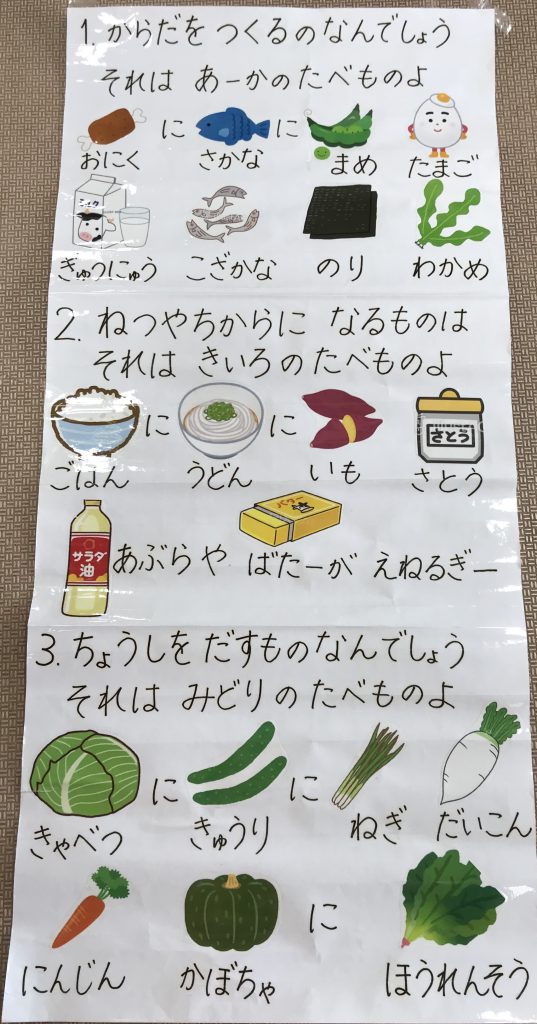 1. からだを つくるのなんでしょう
それは あーかのたべものよ
に に
おにく さかな まめ たまご
ミルク
ぎゅうにゅう こざかな のり わかめ
2. ねつやちからに なるものは
それは きいろのたべものよ
に に さとう
ごはん うどん いも さとう
バター
サラダ油
あぶらや ばたーが えねるぎー
3. ちょうしを だすものなんでしょう
それは みどりのたべものよ
に に
きゃべつ きゅうり ねぎ だいこん
に
にんじん かぼちゃ ほうれんそう